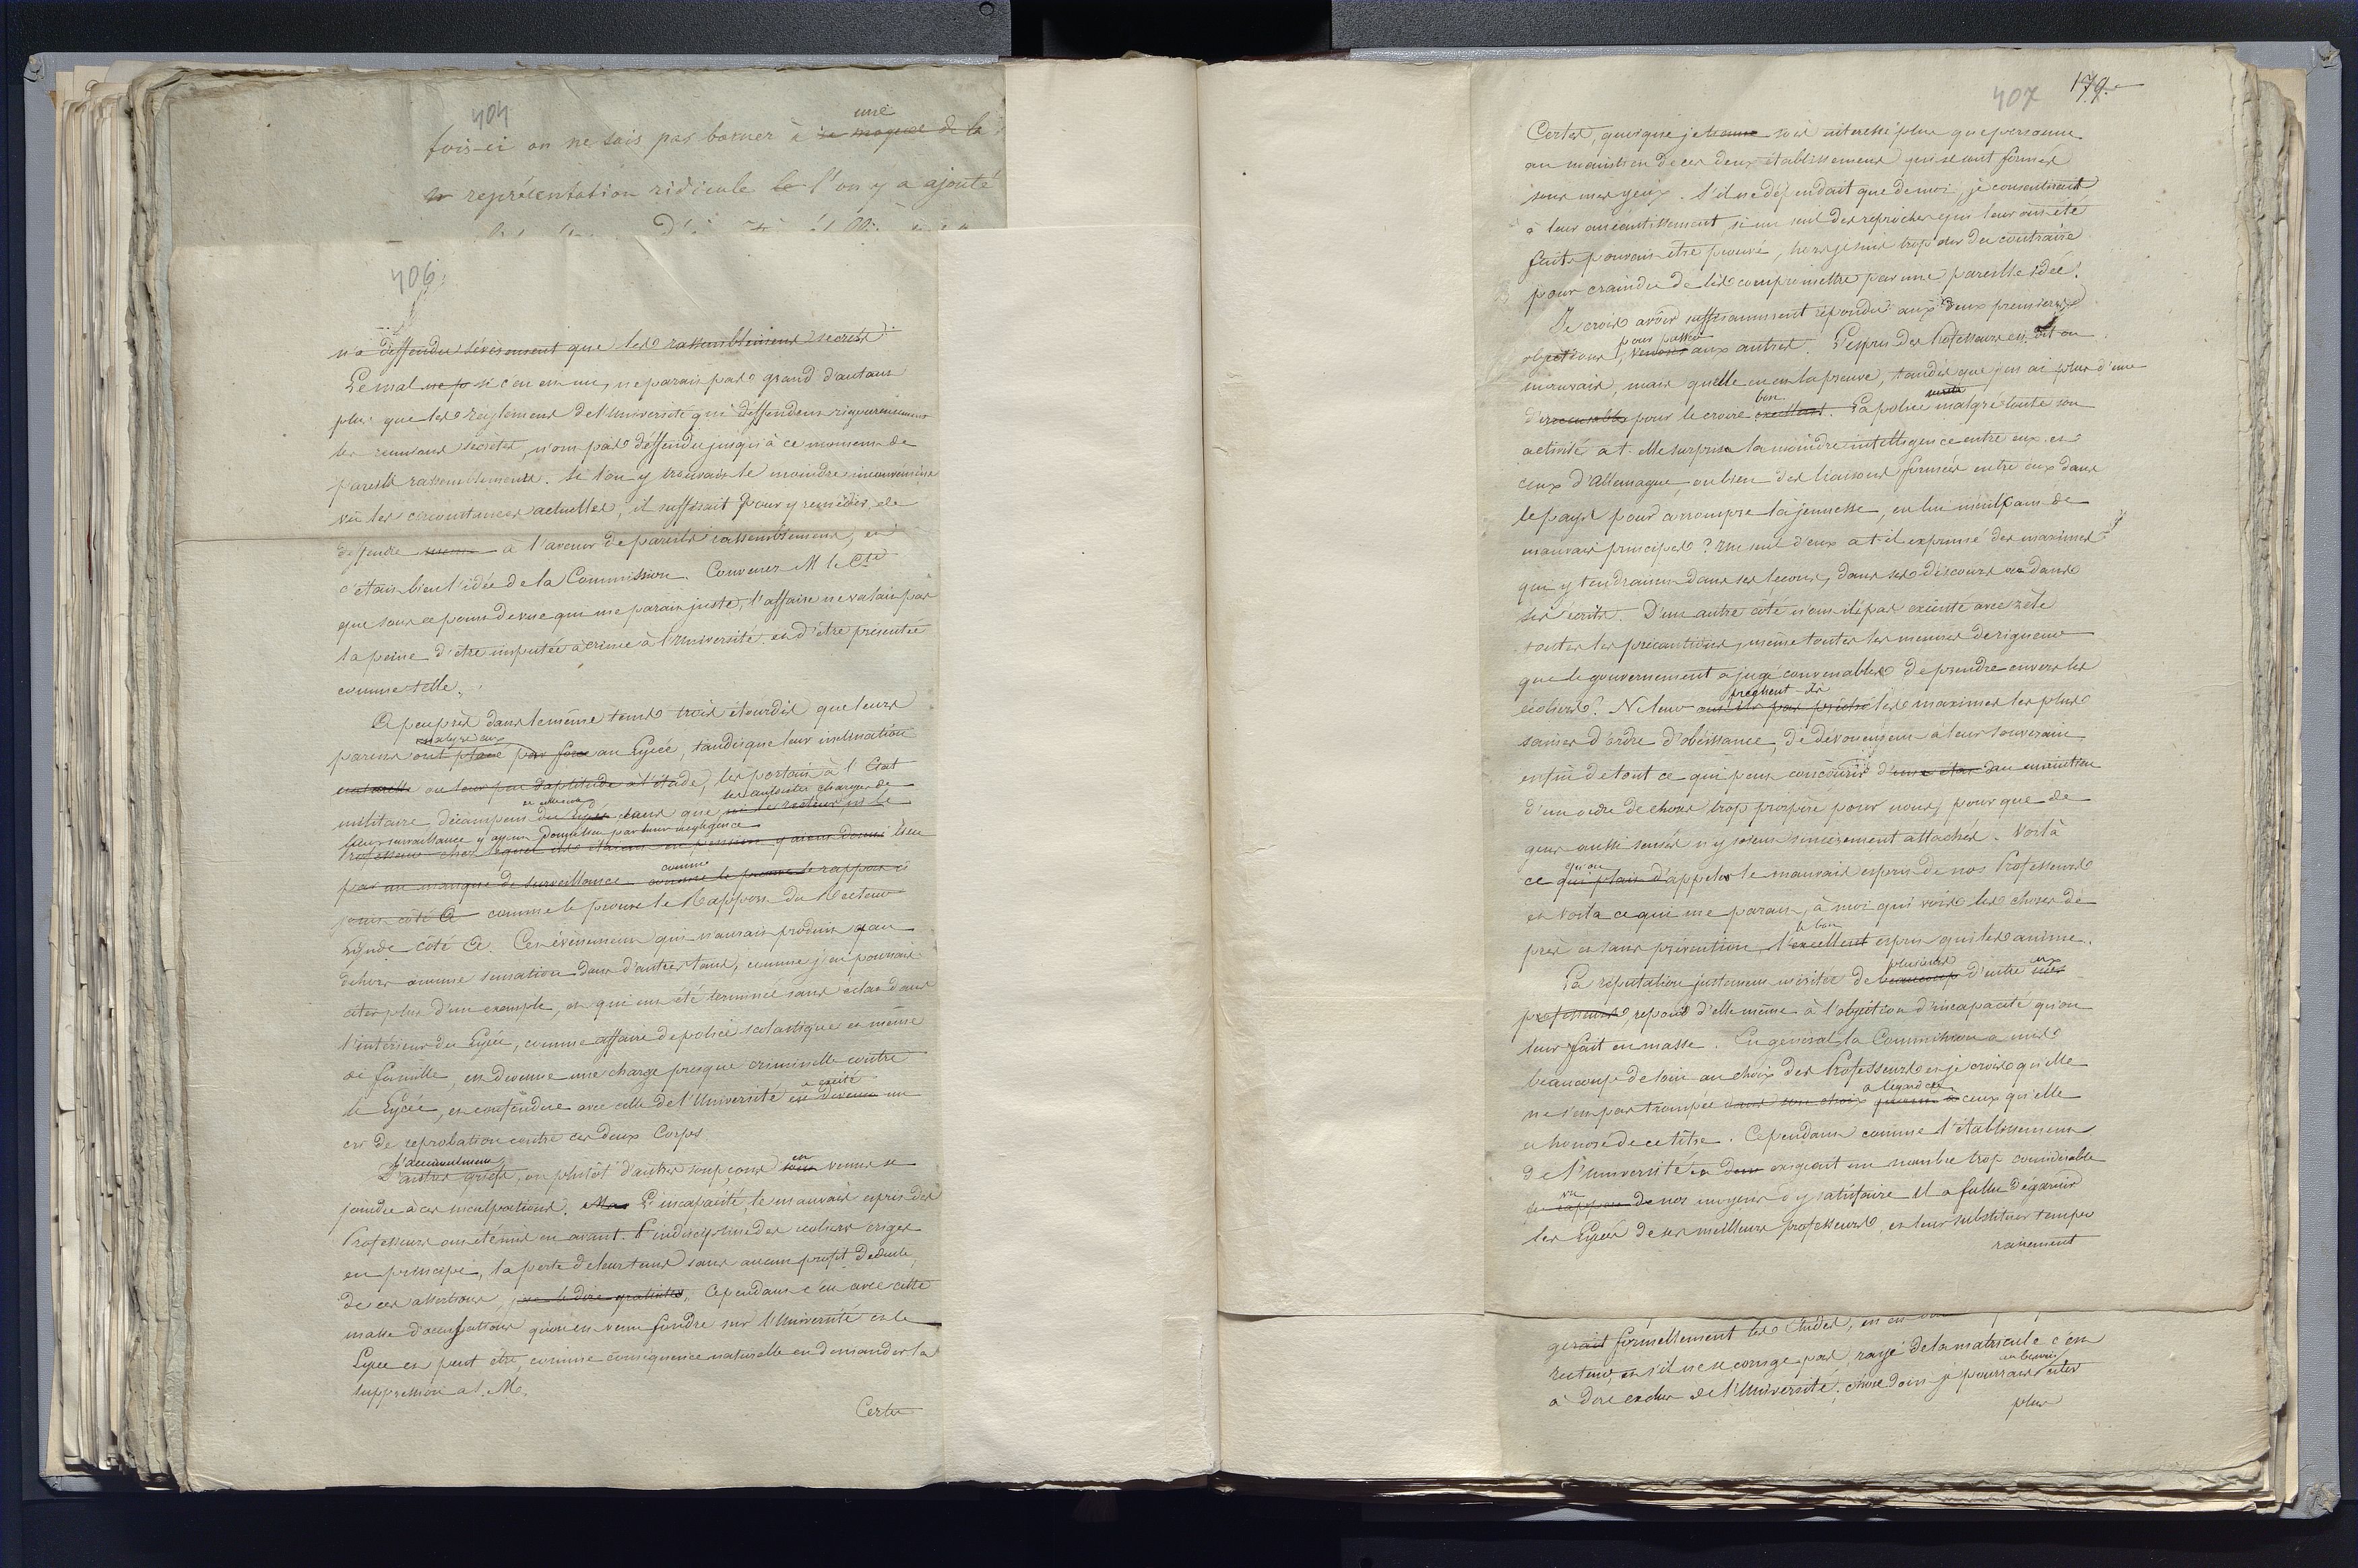 404
une
fois-ci on ne sais pas borner à la moquer de la
representation ridicule le l'on y a ajouté
406
n'a deffendu sévèrement que les rassemblemens secrets.
Le mal ne p si c'en est un, ne parait pas grand d'autant
plus que les reglemens de l'université qui deffendent rigoureusement
les reunions secretes, n'ont pas deffendu jusqu'à ce moment de
pareils rassemblemens. Si l'on y trouvait le moindre inconvénient
vû les circonstances actuelles, il suffisait pour y remédier, de
deffendre à l'avenir de pareils rassemblemens, et
c'était bien l'idée de la Commission. Convenez M le Cte
que sous ce point de vue qui me parait juste, l'affaire ne valait pas
la peine d'être imputée à crime à l'université et d'être présentée
comme telle.
A peu près dans le même tems trois étourdis que leurs
malgré eux
parens ont placé par force au Lycée, tandis que leur inclination
naturelle ou leur peu d'aptitude à l'étude, les portait à l'Etat
les autorités chargées de
militaire décampent du Lycée sans que ni le recteur ni le
leur surveillance y ayent donné lieu par leur negligence
Professeur chez lequel ils étaient en pension y aient donné lieu
comme
par un manque de surveillance comme le prouve le rapport ci
joint coté A comme le prouve le Rapport du Recteur
coté A Cet évènement qui n'aurait produit au
dehors aucune sensation dans d'autres tems, comme j'en pourrais
citer plus d'un exemple, et qui eut été terminé sans eclat dans
l'intérieur du Lycée, comme affaire de police scolastique et même
de famille, est devenue une charge presque criminelle contre
a excité
le Lycée, et confondue avec celle de l'Université est devenu un
cri de reprobation contre ces deux Corps
D'autres griefs, ou plutôt d'autres soupçons sont venus se
joindre à ces inculpations. Mais L'incapacité, le mauvais esprit des
Professeurs ont été mis en avant. L'indiscipline des ecoliers erigée
en principe, la perte de leur tems sans aucun profit deduite
de ces assertions, pour le dire gratuites. Cependant c'est avec cette
masse d'accusations qu'on est venu fondre sur l'Université et le
Lycée et peut être, comme conséquence naturelle en demander la
suppression à S. M.
Certes
407 179.
Certes, quoique je sois interessé plus que personne
au maintien de ces deux établissemens qui se sont formés
sous mes yeux. S'il ne dépendait que de moi, je consentirais
à leur anéantissement, si un seul des reproches qui leur ont été
faits pouvait être prouvé, mais je suis trop sûr du contraire
pour craindre de les compromettre par une pareille idée.
Je crois avoir suffisamment répondu aux deux premieres
pour passer
objections, venons aux autres. L'esprit des Professeurs est dit on
mauvais, mais quelle en est la preuve, tandis que j'en ai plus d'une
bon
pour le croire excellent. La police malgré toute son
activité a t-elle surpris la moindre intelligence entre eux et
ceux d'Allemagne, ou bien des liaisons formées entre eux dans
le pays pour corrompre la jeunesse, en lui inculquant de
mauvais principes? Un seul d'eux a t-il exprimé des maximes
qui y tendraient dans ses lecons, dans ses discours ou dans
ses ecrits. D'un autre côté n'ont ils pas executé avec zèle
toutes les précautions, même toutes les mesures de rigueur
que le gouvernement a jugé convenables de prendre envers les
prechent-ils
écoliers? Ne leur ont ils pas prêché les maximes les plus
saines d'ordre d'obéissance, de dévouement à leur souverain
enfin de tout ce qui peut concourir au maintien
d'un ordre de choses trop prospère pour nous, pour que de
gens aussi sensés n'y soient sincèrement attachés. Voilà
qu'on
ce qui plait d'appeler le mauvais esprit de nos Professeurs
et voila ce qui me parait, à moi qui vois les choses de
le bon
près et sans prévention, l'excellent esprit qui les anime.
plusieurs eux
La réputation justement méritée de beaucoup d'entre nos
professeurs, repond d'elle même à l'objection d'incapacité qu'on
leur fait en masse. En général la Commission a mis
beaucoup de soin au choix des Professeurs et je crois qu'elle
à l'égard de
ne s'est pas trompée dans son choix quant à ceux qu'elle
a honoré de ce titre. Cependant comme l'établissement
de l'Université exigeait un nombre trop considerable
vu
par rapport de nos moyens d'y satisfaire il a fallu dégarnir
les Lycées de ses meilleurs professeurs, et leur substituer tempo
rairement
gerait formellement les études, en
recteur, et s'il ne se corrige pas, rayé de la matricule c'est
au besoin
à dire exclus de l'Université, chose dont je pourrais citer
plus